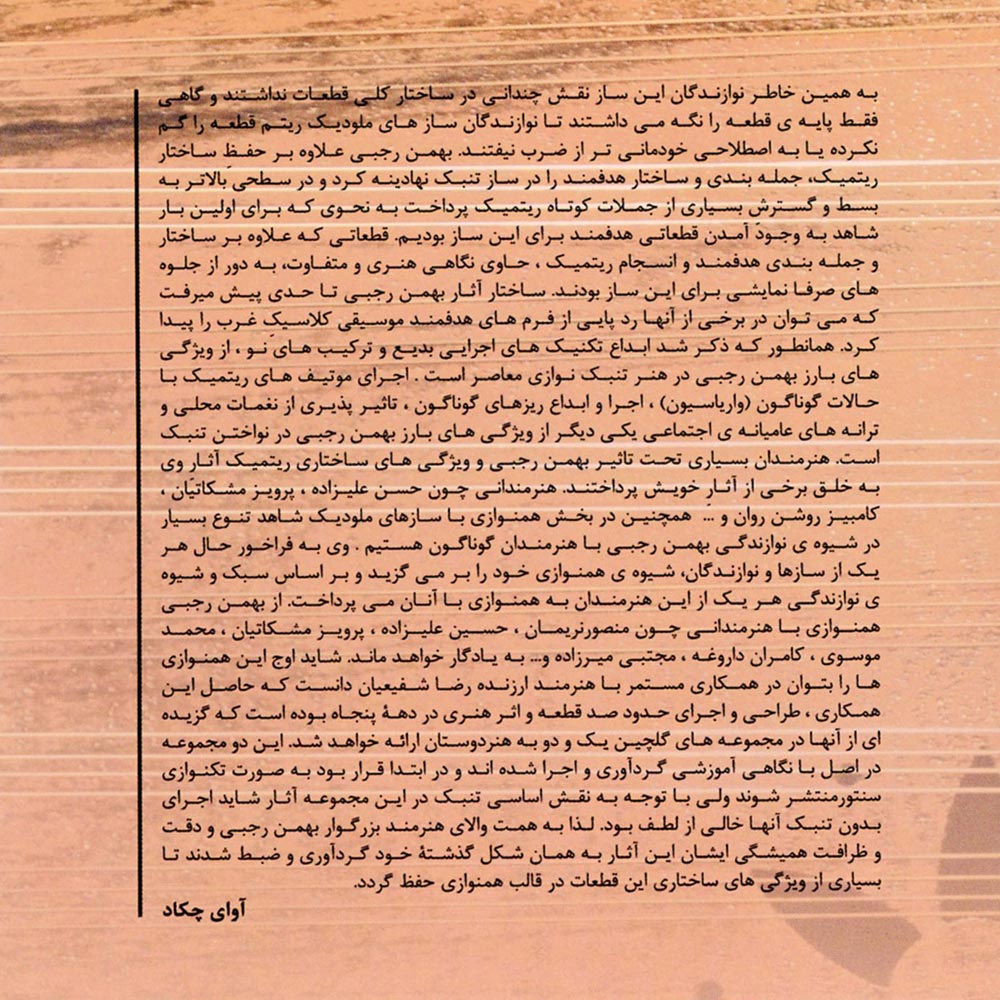 به همین خاطر نوازندگان این ساز نقش چندانی در ساختار کلی قطعات نداشتند و گاهی
فقط پایه ی قطعه را نگه می داشتند تا نوازندگان ساز های ملودیک ریتم قطعه را گم
نکرده یا به اصطلاحی خودمانی تر از ضرب نیفتند. بهمن رجبی علاوه بر حفظ ساختار
ریتمیک، جمله بندی و ساختار هدفمند را در ساز تنبک نهادینه کرد و در سطحی بالاتر به
بسط و گسترش بسیاری از جملات کوتاه ریتمیک پرداخت به نحوی که برای اولین بار
شاهد به وجود آمدن قطعاتی هدفمند برای این ساز بودیم. قطعاتی که علاوه بر ساختار
و جمله بندی هدفمند و انسجام ریتمیک ، حاوی نگاهی هنری و متفاوت، به دور از جلوه
های صرفا نمایشی برای این ساز بودند. ساختار آثار بهمن رجبی تا حدی پیش میرفت
که می توان در برخی از آنها رد پایی از فرم های هدفمند موسیقی کلاسیک غرب را پیدا
کرد. همانطور که ذکر شد ابداع تکنیک های اجرایی بدیع و ترکیب های نو ، از ویژگی
های بارز بهمن رجبی در هنر تنبک نوازی معاصر است . اجرای موتیف های ریتمیک با
حالات گوناگون (واریاسیون) ، اجرا و ابداع ریزهای گوناگون ، تاثیر پذیری از نغمات محلی و
ترانه های عامیانه ی اجتماعی یکی دیگر از ویژگی های بارز بهمن رجبی در نواختن تنبک
است. هنرمندان بسیاری تحت تاثیر بهمن رجبی و ویژگی های ساختاری ریتمیک آثار وی
به خلق برخی از آثار خویش پرداختند. هنرمندانی چون حسن علیزاده ، پرویز مشکاتیان ،
کامبیز روشن روان و ... همچنین در بخش همنوازی با سازهای ملودیک شاهد تنوع بسیار
در شیوه ی نوازندگی بهمن رجبی با هنرمندان گوناگون هستیم . وی به فراخور حال هر
یک از سازها و نوازندگان، شیوه ی همنوازی خود را بر می گزید و بر اساس سبک و شیوه
ی نوازندگی هر یک از این هنرمندان به همنوازی با آنان می پرداخت. از بهمن رجبی
همنوازی با هنرمندانی چون منصورنریمان ، حسین علیزاده ، پرویز مشکاتیان ، محمد
موسوی ، کامران داروغه ، مجتبی میرزاده و... به یادگار خواهد ماند. شاید اوج این همنوازی
ها را بتوان در همکاری مستمر با هنرمند ارزنده رضا شفیعیان دانست که حاصل این
همکاری ، طراحی و اجرای حدود صد قطعه و اثر هنری در دههٔ پنجاه بوده است که گزیده
ای از آنها در مجموعه های گلچین یک و دو به هنردوستان ارائه خواهد شد. این دو مجموعه
در اصل با نگاهی آموزشی گردآوری و اجرا شده اند و در ابتدا قرار بود به صورت تکنوازی
سنتورمنتشر شوند ولی با توجه به نقش اساسی تنبک در این مجموعه آثار شاید اجرای
بدون تنبک آنها خالی از لطف بود. لذا به همت والای هنرمند بزرگوار بهمن رجبی و دقت
و ظرافت همیشگی ایشان این آثار به همان شکل گذشتهٔ خود گردآوری و ضبط شدند تا
بسیاری از ویژگی های ساختاری این قطعات در قالب همنوازی حفظ گردد.
آوای چکاد